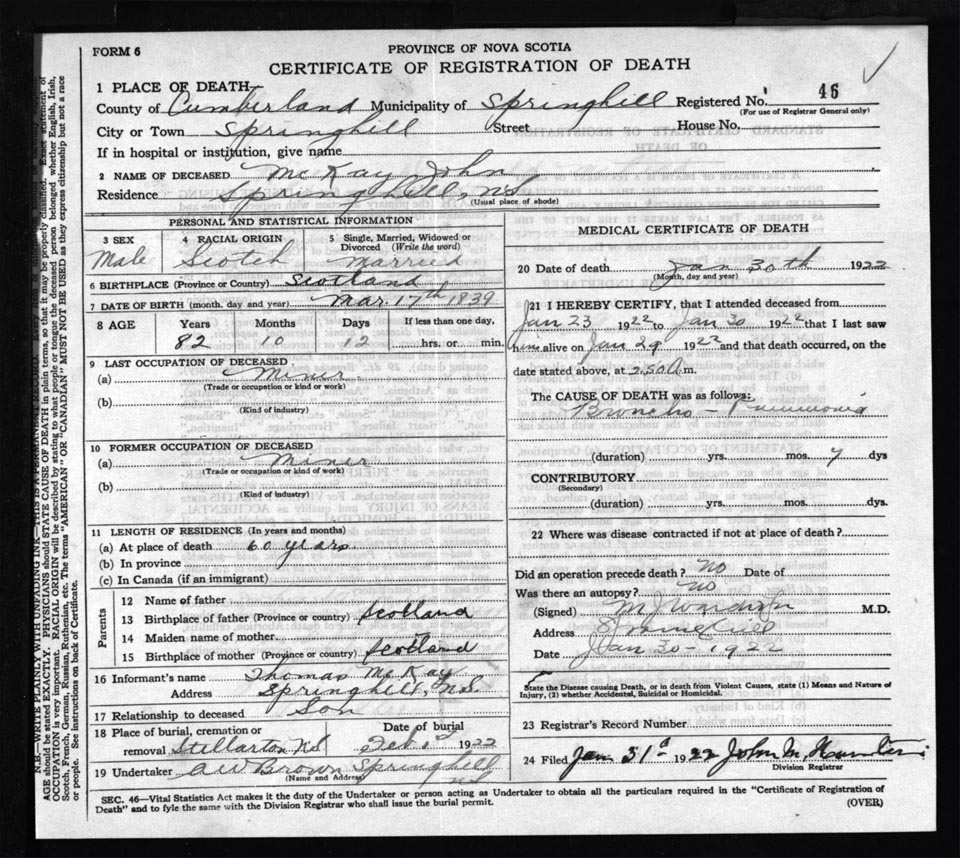 FORM 6
PROVINCE OF NOVA SCOTIA
CERTIFICATE OF REGISTRATION OF DEATH
1 PLACE OF DEATH
County of Cumberland Municipality of Springhill Registered No. 46
(For use of Registrar General only)
City or Town Springhill Street House No.
If in hospital or institution, give name
2 NAME OF DECEASED McKay John
Residence Springhill, N.S.
(Usual place of abode)
PERSONAL AND STATISTICAL INFORMATION
3 SEX Male
4 RACIAL ORIGIN Scotch
5 Single, Married, Widowed or Divorced (Write the word) Married
6 BIRTHPLACE (Province or Country) Scotland
7 DATE OF BIRTH (month, day and year) Mar. 17th 1839
8 AGE Years Months Days If less than one day,
82 10 12 hrs. or min.
9 LAST OCCUPATION OF DECEASED
(a) Miner
(Trade or occupation or kind of work)
(b)
(Kind of industry)
10 FORMER OCCUPATION OF DECEASED
(a) Miner
(Trade or occupation or kind of work)
(b)
(Kind of industry)
11 LENGTH OF RESIDENCE (In years and months)
(a) At place of death 60 years
(b) In province
(c) In Canada (if an immigrant)
Parents
12 Name of father
13 Birthplace of father (Province or country) Scotland
14 Maiden name of mother
15 Birthplace of mother (Province or country) Scotland
16 Informant's name Thomas McKay
Address Springhill, N.S.
17 Relationship to deceased Son
18 Place of burial, cremation or removal Stellarton N.S. Date of burial Feb. 1st 1922
19 Undertaker A W Brown Springhill N.S.
(Name and Address)
MEDICAL CERTIFICATE OF DEATH
20 Date of death Jan 30th 1922
(Month, day and year)
21 I HEREBY CERTIFY, that I attended deceased from
Jan 23 1922 to Jan 30 1922 that I last saw
him alive on Jan 29 1922 and that death occurred, on the
date stated above, at 2.50 A.m.
The CAUSE OF DEATH was as follows:
Broncho-Pneumonia
(duration) yrs. mos. 7 dys
CONTRIBUTORY
(Secondary)
(duration) yrs. mos. dys.
22 Where was disease contracted if not at place of death?
Did an operation precede death? No Date of
Was there an autopsy? No
(Signed) M.D.
Address Springhill
Date Jan 30-1922
State the Disease causing Death, or in death from Violent Causes, state (1) Means and Nature of
Injury, (2) whether Accidental, Suicidal or Homicidal.
23 Registrar's Record Number
24 Filed Jan 31st 1922 John M. Hunter
Division Registrar
SEC. 46—Vital Statistics Act makes it the duty of the Undertaker or person acting as Undertaker to obtain all the particulars required in the "Certificate of Registration of
Death" and to fyle the same with the Division Registrar who shall issue the burial permit.
(OVER)
N.B.—WRITE PLAINLY WITH UNFADING INK—THIS IS A PERMANENT RECORD.
AGE should be stated EXACTLY. PHYSICIANS should STATE CAUSE OF DEATH in plain terms, so that it may be properly classified. Exact statement of
OCCUPATION is very important. RACIAL ORIGIN will be described by stating to what people or tongue the deceased person belonged whether English, Irish,
Scotch, French, German, Russian, Ruthenian, etc. The terms "AMERICAN" OR "CANADIAN" MUST NOT BE USED as they express citizenship but not a race
or people. See instructions on back of Certificate.